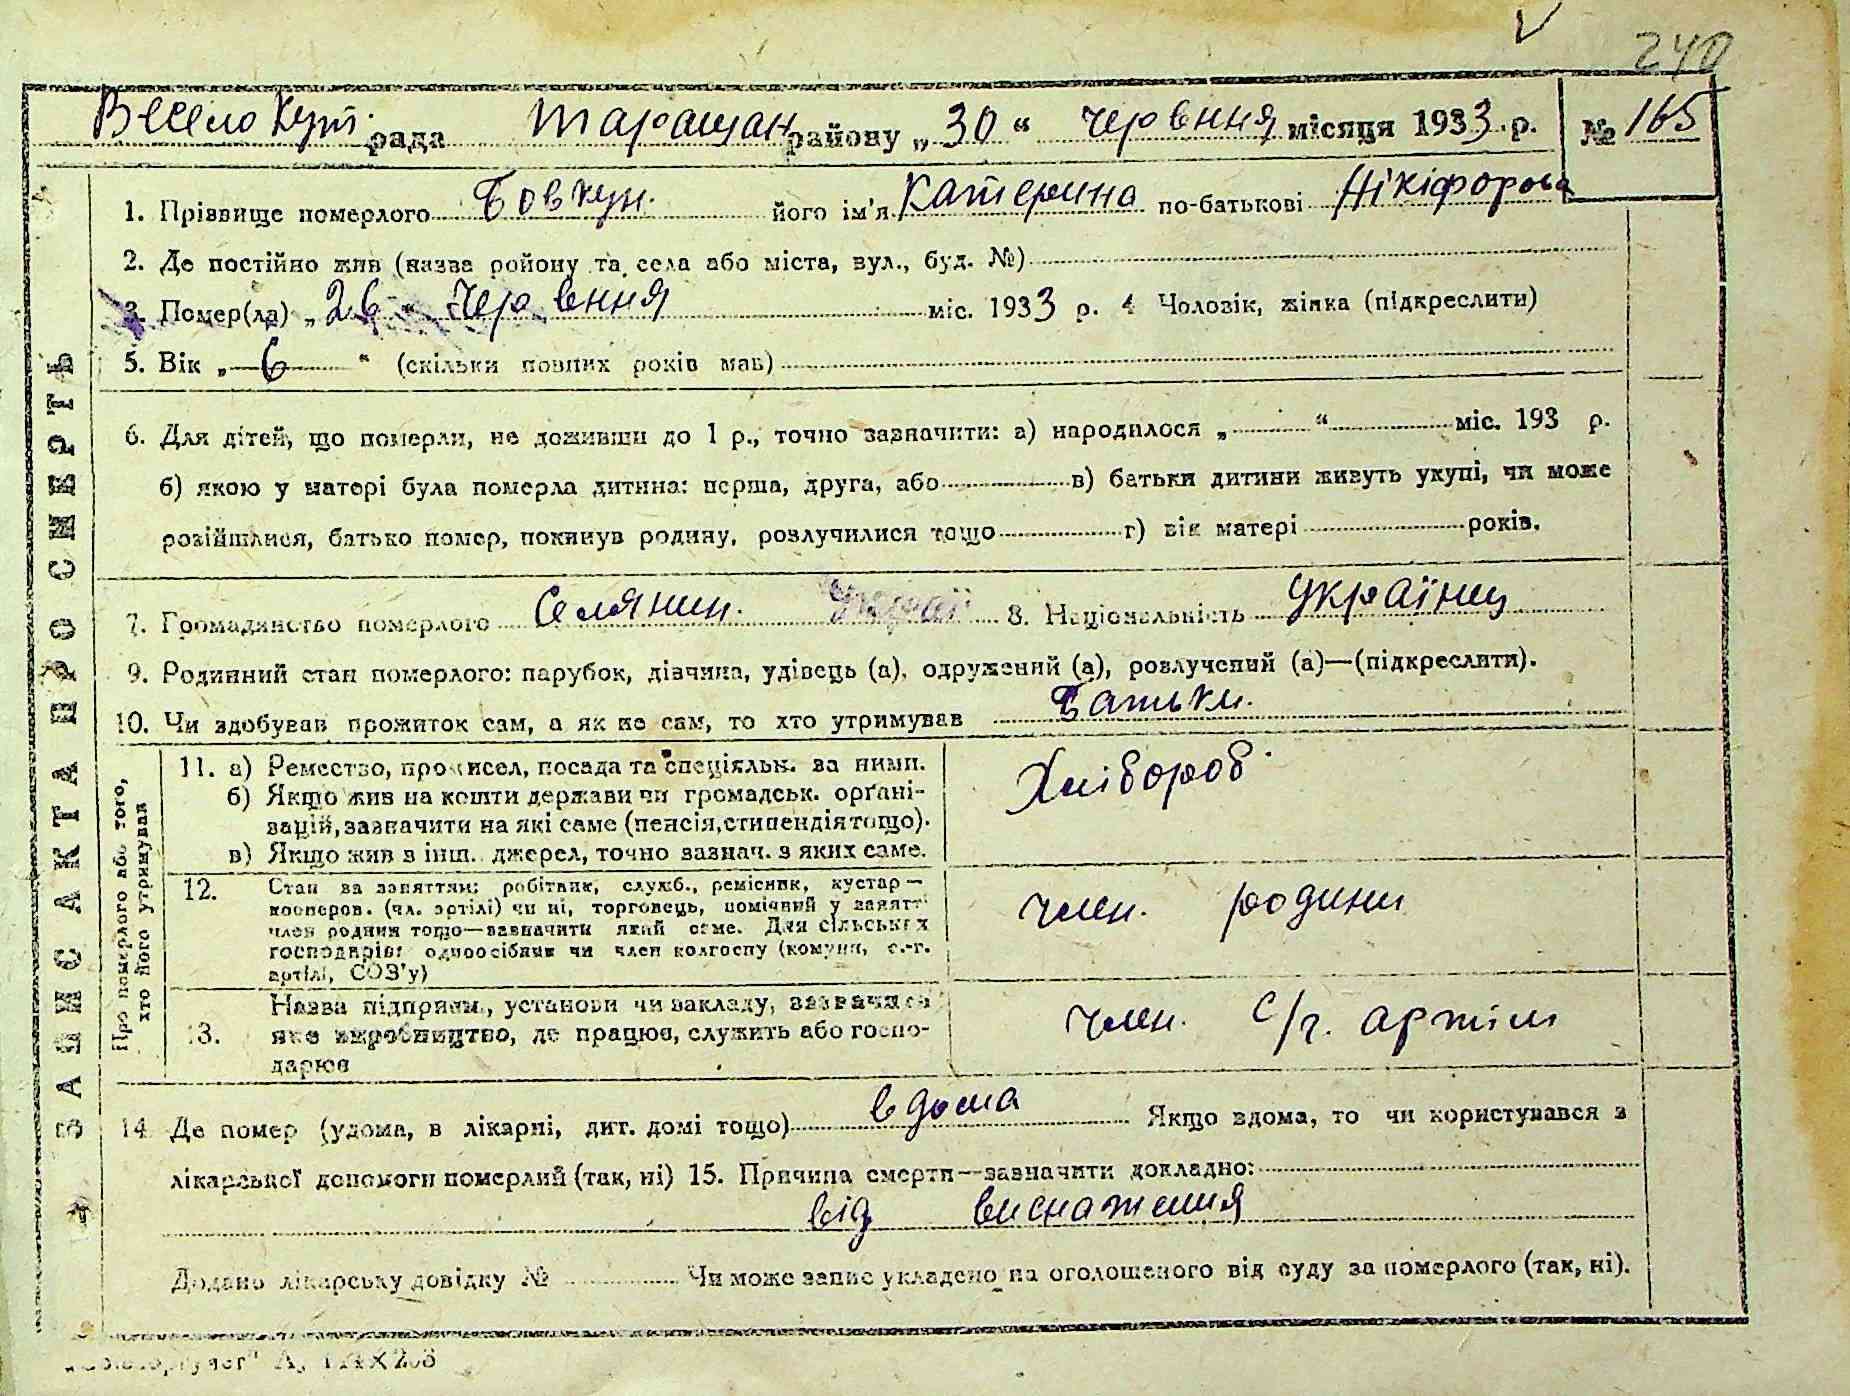 240
Веселокут. рада Таращан району „30“ червння місяця 1933 р. № 165
ЗАПИС АКТА ПРО СМЕРТЬ
1. Прізвище померлого Бовкун. його ім'я Катерина по-батькові Нікіфорова
2. Де постійно жив (назва ройону та села або міста, вул., буд. №)
3. Помер(ла) „26“ червння міс. 1933 р. 4 Чоловік, жінка (підкреслити)
5. Вік „6“ (скільки повних років мав)
6. Для дітей, що померли, не доживши до 1 р., точно зазначити: а) народилося „ “ міс. 193 р.
б) якою у матері була померла дитина: перша, друга, або в) батьки дитини живуть укупі, чи може
розійшлися, батько помер, покинув родину, розлучилися тощо г) вік матері років.
7. Громадянство померлого Селянин. 8. Національність Українц
9. Родинний стан померлого: парубок, дівчина, удівець (а), одружений (а), розлучений (а)—(підкреслити).
10. Чи здобував прожиток сам, а як не сам, то хто утримував Батьки.
Про померлого або того, хто його утримував
11. а) Ремество, промисел, посада та спеціяльн. за ними.
б) Якщо жив на кошти держави чи громадськ. орґані-
зацій, зазначити на які саме (пенсія, стипендія тощо).
в) Якщо жив з інш. джерел, точно зазнач. з яких саме.
Хлібороб
12. Стан за заняттям: робітник, служб., ремісник, кустар—
кооперов. (чл. артілі) чи ні, торговець, помічний у занятті
член родини тощо—зазначити який саме. Для сільських
господарів: одноосібник чи член колгоспу (комуни, с.-г.
артілі, СОЗ'у)
член. родини
13. Назва підприєм., установи чи закладу, зазначися
яке виробництво, де працює, служить або госпо-
дарює
член. с/г. артіли
14 Де помер (удома, в лікарні, дит. домі тощо) вдома Якщо вдома, то чи користувався з
лікарської допомоги померлий (так, ні) 15. Причина смерти—зазначити докладно:
від виснаження
Додано лікарську довідку № Чи може запис укладено на оголошеного від суду за померлого (так, ні).